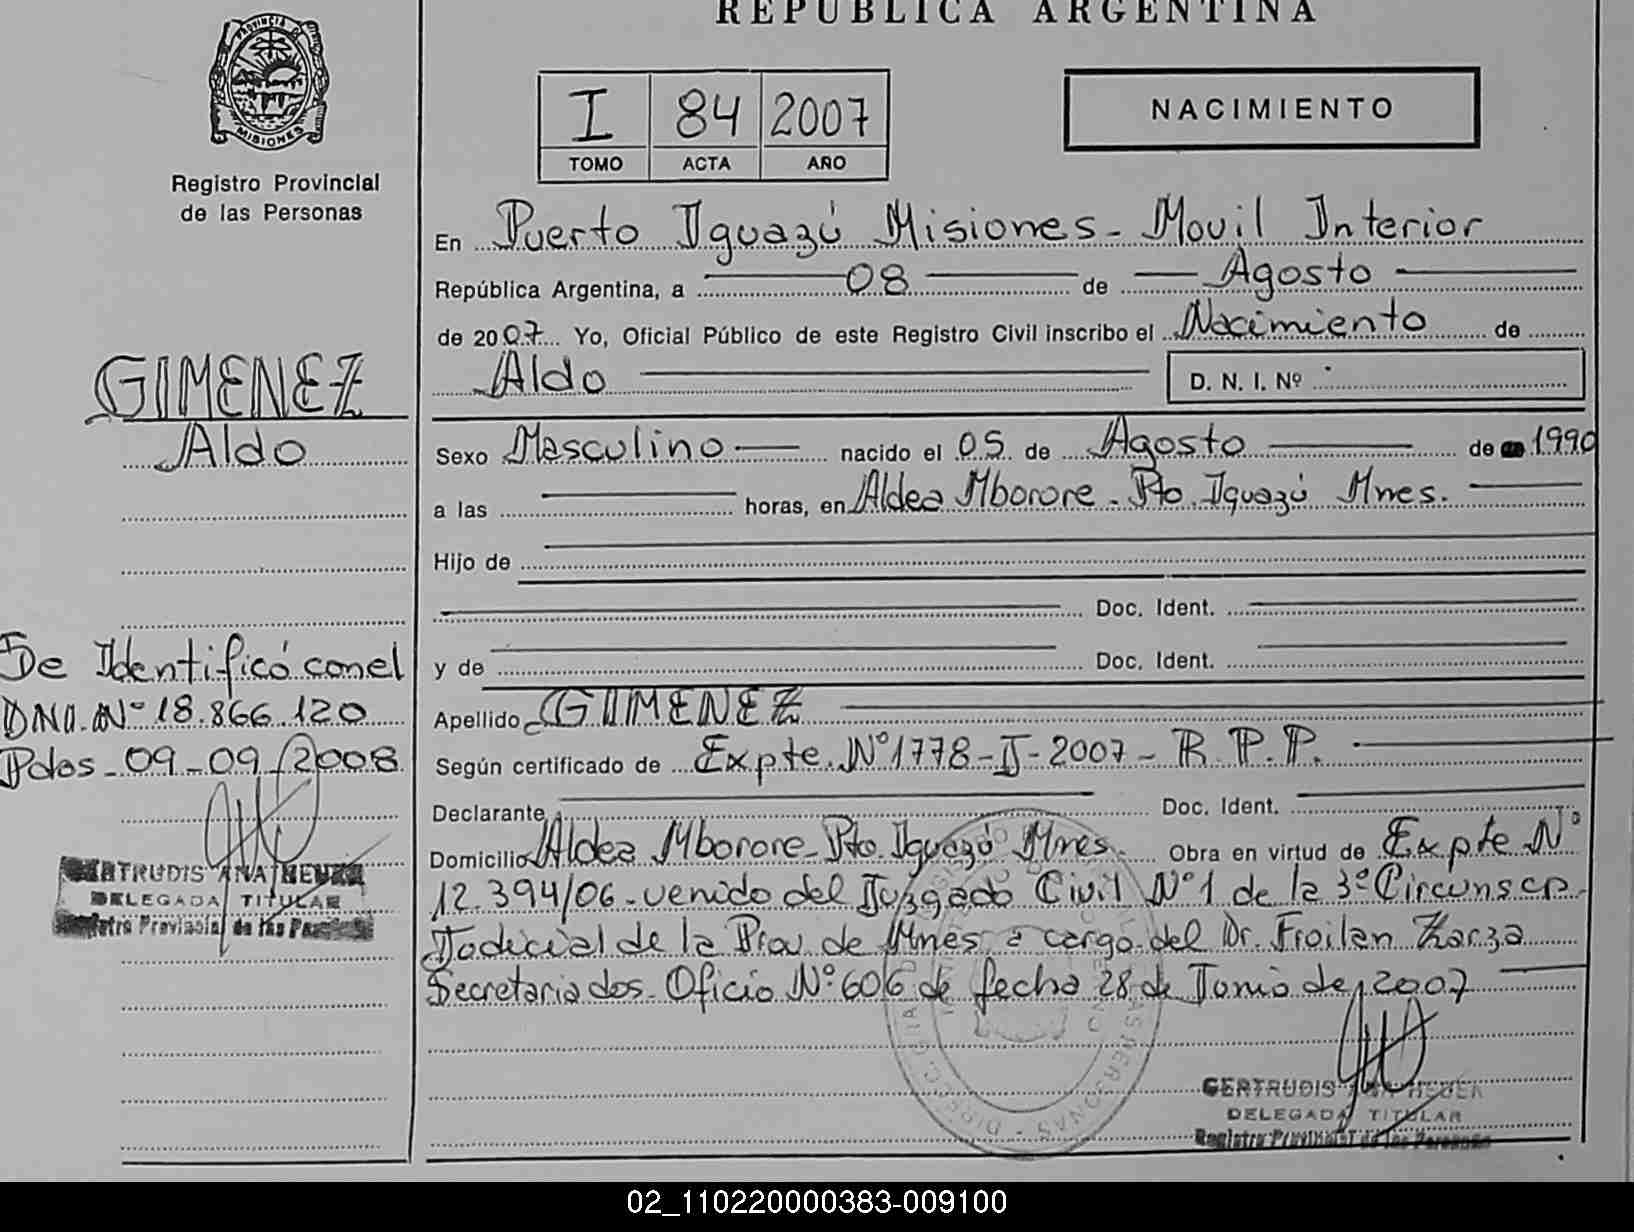 REPUBLICA ARGENTINA
PROVINCIA DE
MISIONES
Registro Provincial
de las Personas
I 84 2007
TOMO ACTA AÑO
NACIMIENTO
En Puerto Iguazú Misiones - Movil Interior
República Argentina, a 08 de Agosto
de 2007. Yo, Oficial Público de este Registro Civil inscribo el Nacimiento de
Aldo D. N. I. Nº
GIMENEZ
Aldo
Sexo Masculino nacido el 05 de Agosto de 1990
a las horas, en Aldea Mborore - Pto. Iguazú Mnes.
Hijo de
Doc. Ident.
y de Doc. Ident.
Apellido GIMENEZ
Según certificado de Expte. Nº 1778-I-2007 - R.P.P.
Declarante Doc. Ident.
Domicilio Aldea Mborore - Pto. Iguazú Mnes. Obra en virtud de Expte Nº
12.394/06 - venido del Juzgado Civil Nº 1 de la 3º Circunscp.
Judicial de la Prov. de Mnes a cargo del Dr. Froilan Zarza
Secretaria dos - Oficio Nº 606 de fecha 28 de Junio de 2007
Se Identificó con el
DNI. Nº 18.866.120
Pdas - 09-09/2008
GERTRUDIS ANA HEUER
DELEGADA TITULAR
Registro Provincial de las Personas
GERTRUDIS ANA HEUER
DELEGADA TITULAR
Registro Provincial de las Personas
02_110220000383-009100